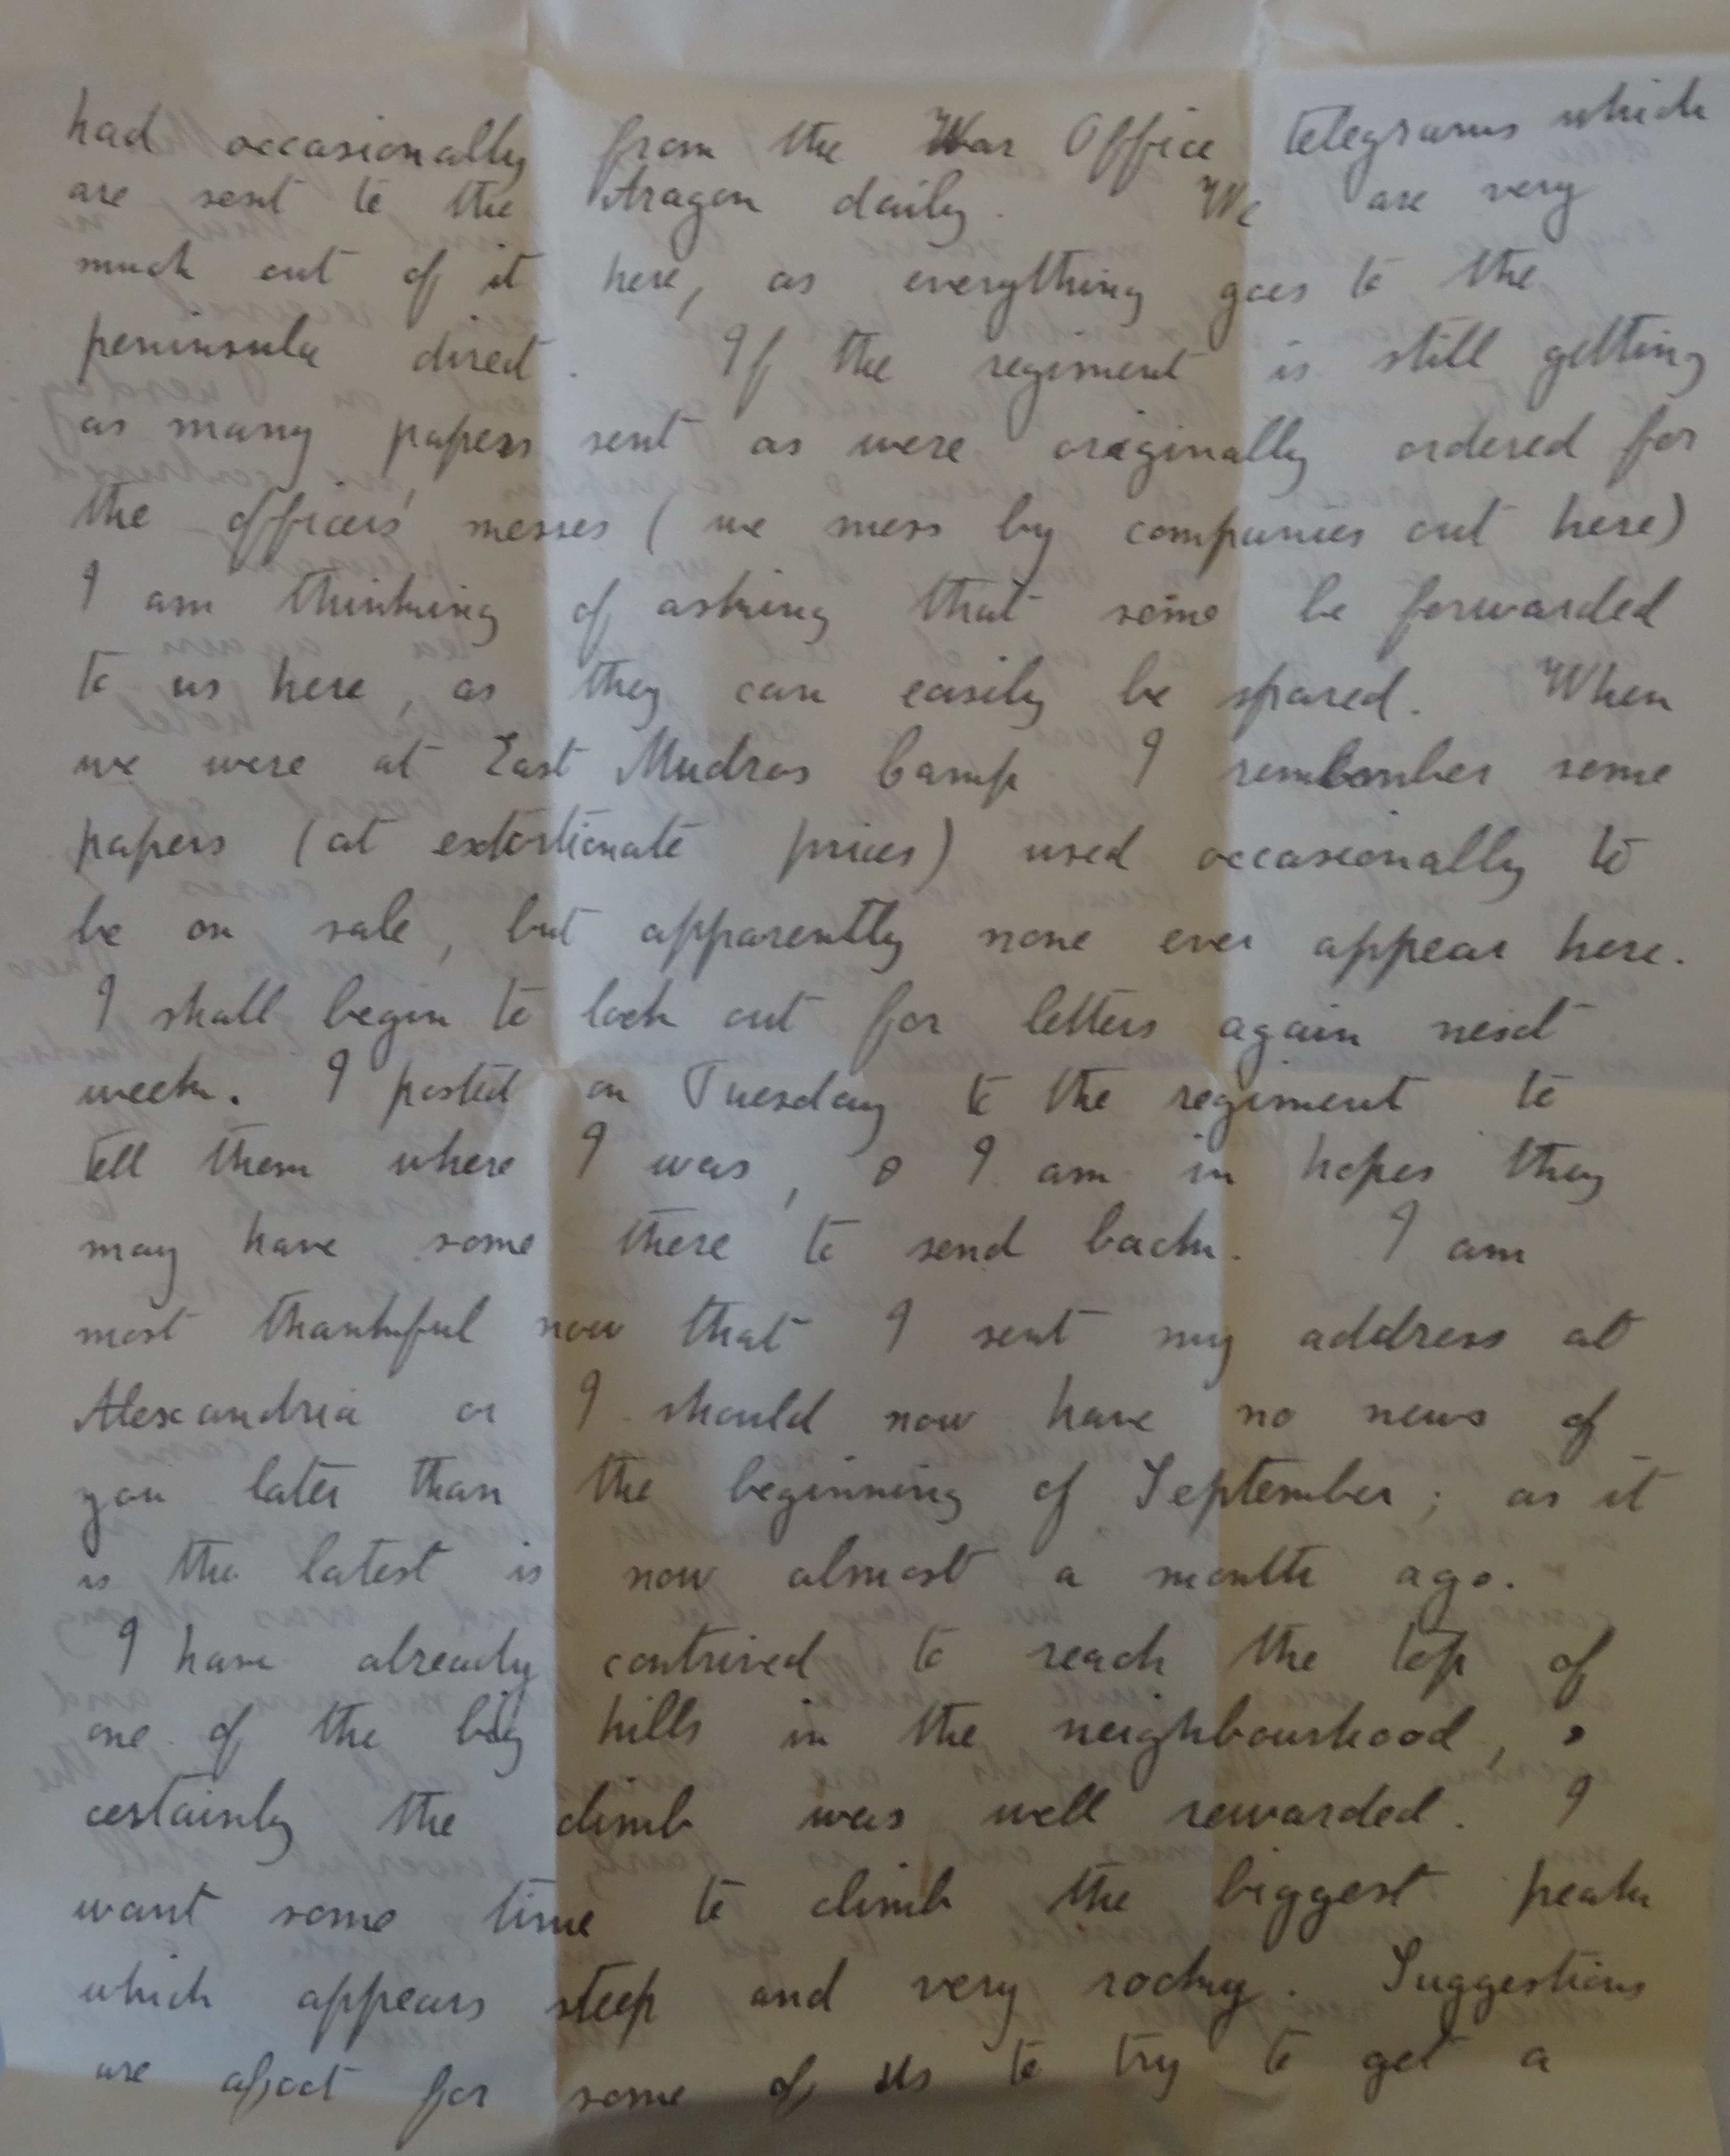 had occasionally from the War Office telegrams which
are sent to the Aragon daily. We are very
much out of it here, as everything goes to the
peninsula direct. If the regiment is still getting
as many papers sent as were originally ordered for
the officers' messes (we mess by companies out here)
I am thinking of asking that some be forwarded
to us here, as they can easily be spared. When
we were at East Mudros Camp I remember some
papers (at extortionate prices) used occasionally to
be on sale, but apparently none ever appear here.
I shall begin to look out for letters again next
week. I posted on Tuesday to the regiment to
tell them where I was, & I am in hopes they
may have some there to send back. I am
most thankful now that I sent my address at
Alexandria or I should now have no news of
you later than the beginning of September; as it
is the latest is now almost a month ago.
I have already contrived to reach the top of
one of the big hills in the neighbourhood, &
certainly the climb was well rewarded. I
want some time to climb the biggest peak
which appears steep and very rocky. Suggestions
are afoot for some of us to try to get a